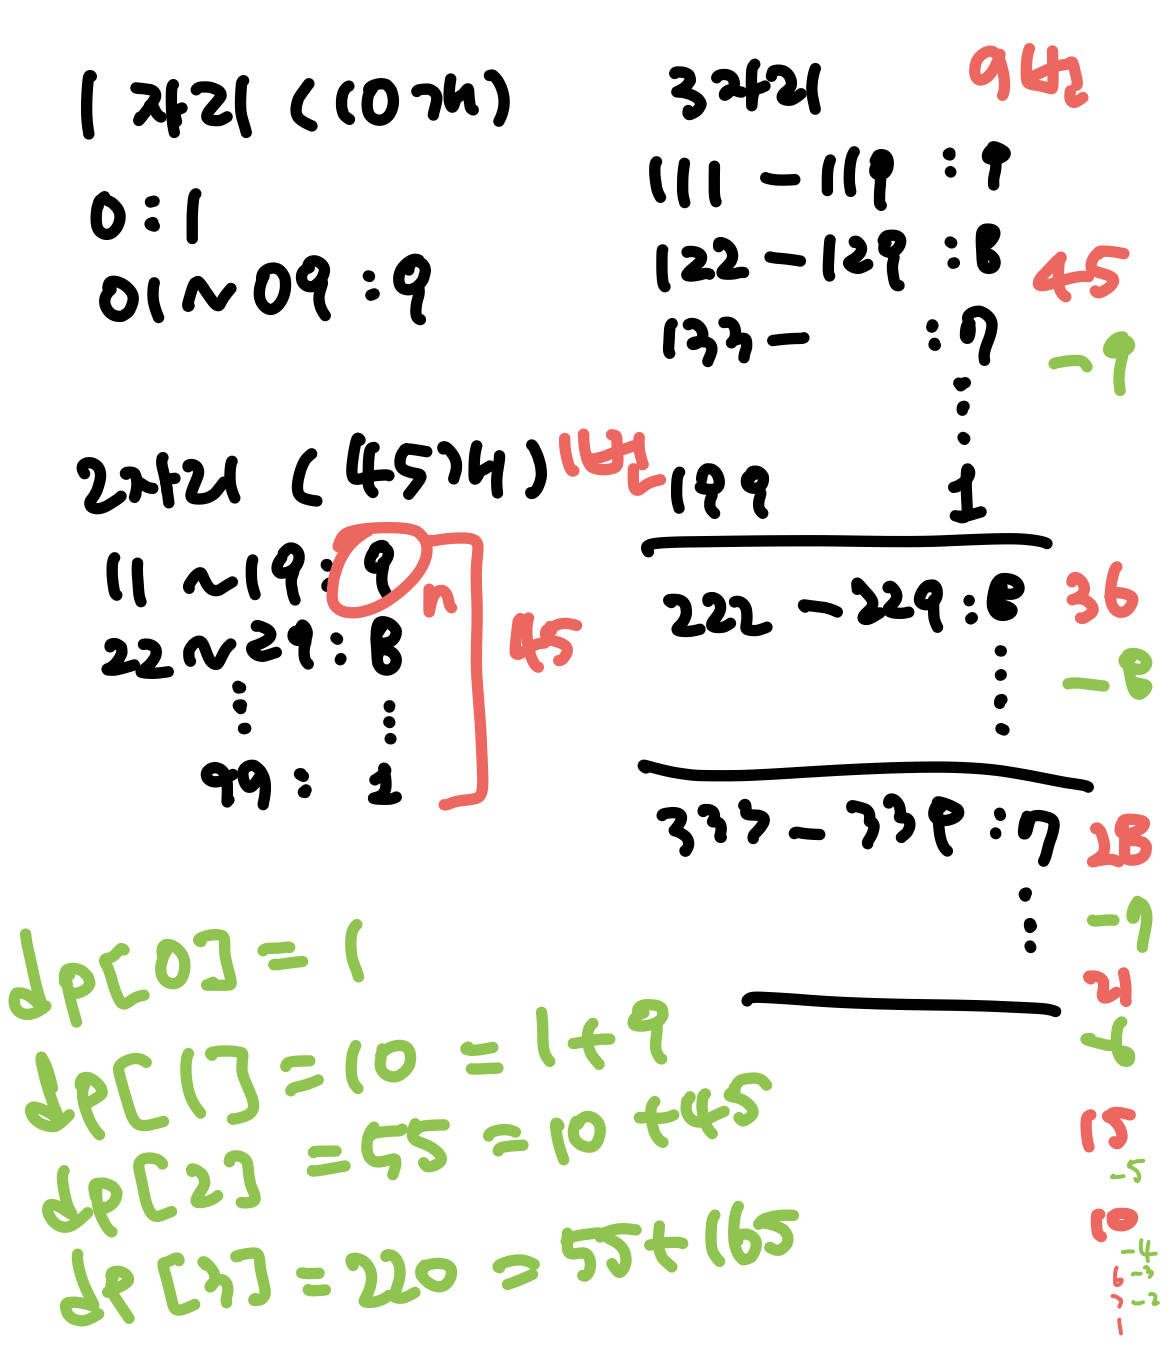 1자리 (10개)
0 : 1
01 ~ 09 : 9
2자리 (45개) 1번
11 ~ 19 : 9 n
22 ~ 29 : 8
45
99 : 1
3자리 9번
111 - 119 : 9
122 - 129 : 8
45
133 - : 7
-9
199 1
222 - 229 : 8
36
-8
333 - 339 : 7
28
-7
21
-6
15
-5
10
-4
6 -3
3 -2
1
dp[0] = 1
dp[1] = 10 = 1+9
dp[2] = 55 = 10+45
dp[3] = 220 = 55+165